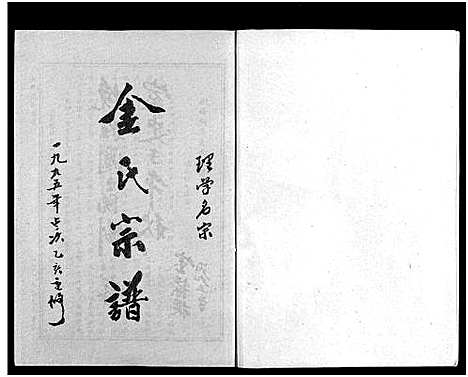 理学名宗
金氏宗譜
一九九五年岁次乙亥重修